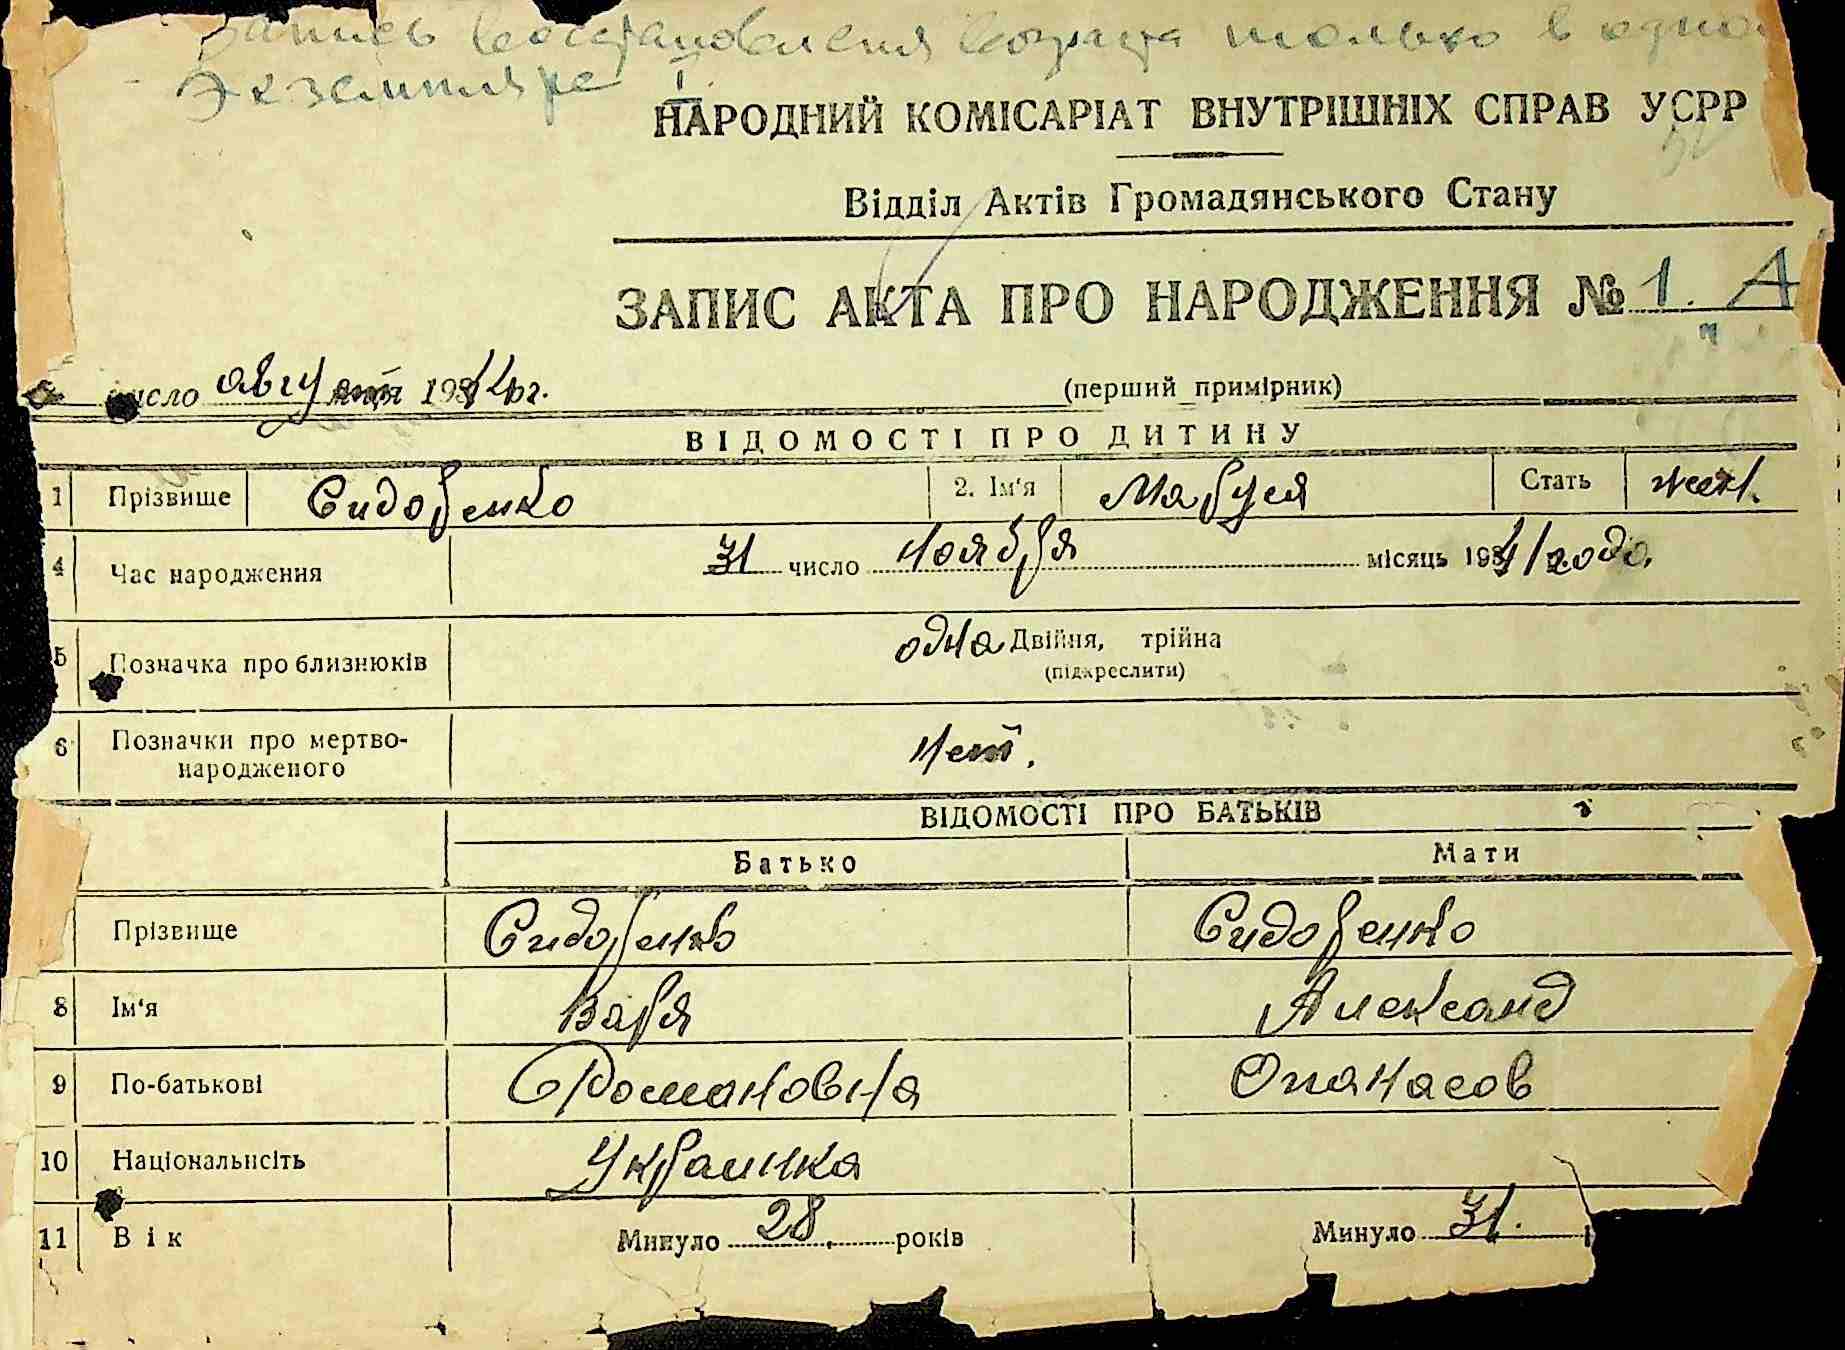 Запись восстановления возраста только в одно
экземпляре
НАРОДНИЙ КОМІСАРІАТ ВНУТРІШНІХ СПРАВ УСРР
Відділ Актів Громадянського Стану
ЗАПИС АКТА ПРО НАРОДЖЕННЯ № 1. А
число августа 1942 г.
(перший примірник)
ВІДОМОСТІ ПРО ДИТИНУ
1 Прізвище Сидоренко 2. Ім'я Маруся Стать жен.
4 Час народження 31 число ноября місяць 1941 года.
5 Позначка про близнюків одна Двійня, трійна
(підкреслити)
6 Позначки про мертво-
народженого нет.
ВІДОМОСТІ ПРО БАТЬКІВ
Батько Мати
Прізвище Сидоренко Сидоренко
8 Ім'я Варя Александ
9 По-батькові Романовна Опанасов
10 Національність Украинка
11 Вік Минуло 28 років Минуло 31.